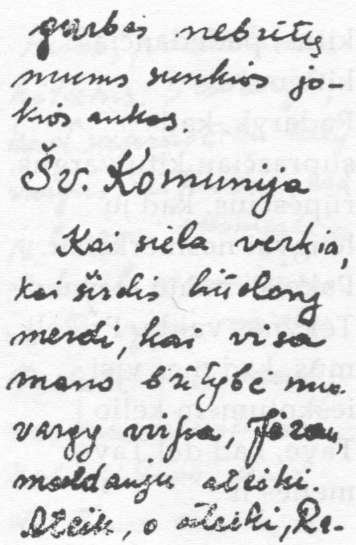 garbės nebūtų
mums sunkios jo-
kios aukos.
Šv. Komunija
Kai siela verkia,
kai širdis liūdesy
merdi, kai visa
mano būtybė nuo
vargų virpa, Jėzau,
maldauju ateiki.
Ateik, o ateiki, Re-